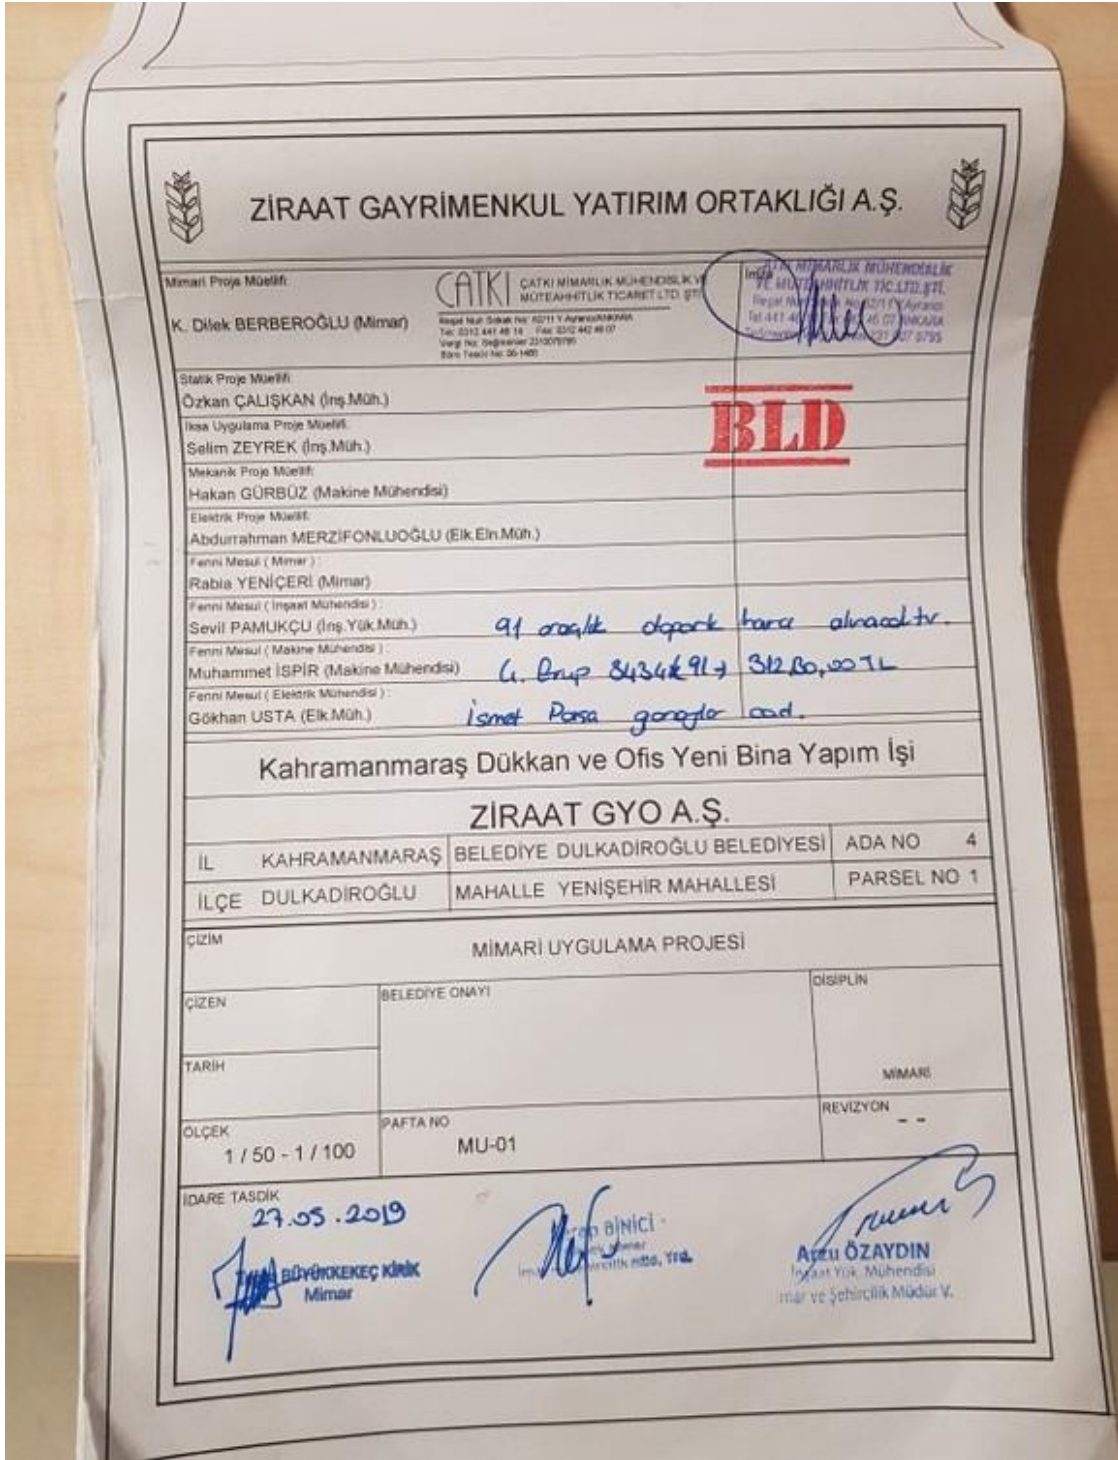 ZİRAAT GAYRİMENKUL YATIRIM ORTAKLIĞI A.Ş.
Mimari Proje Müellifi:
K. Dilek BERBEROĞLU (Mimar)
ÇATKI
ÇATKI MİMARLIK MÜHENDİSLİK VE
MÜTEAHHİTLİK TİCARET LTD. ŞTİ.
Reşat Nuri Sokak No: 62/11 Y.Ayrancı/ANKARA
Tel: 0312 441 46 14 Fax: 0312 442 46 07
Vergi No:
Büro Tescil No: 06-1466
İmza
MİMARLIK MÜHENDİSLİK
VE MÜTEAHHİTLİK TİC.LTD.ŞTİ.
Reşat Nuri Sokak No:62/11 Y.Ayrancı
ANKARA
Statik Proje Müellifi:
Özkan ÇALIŞKAN (İnş.Müh.)
BLD
İksa Uygulama Proje Müellifi:
Selim ZEYREK (İnş.Müh.)
Mekanik Proje Müellifi:
Hakan GÜRBÜZ (Makine Mühendisi)
Elektrik Proje Müellifi:
Abdurrahman MERZİFONLUOĞLU (Elk.Eln.Müh.)
Fenni Mesul ( Mimar ) :
Rabia YENİÇERİ (Mimar)
Fenni Mesul ( İnşaat Mühendisi ) :
Sevil PAMUKÇU (İnş.Yük.Müh.)
91 araçlık otopark harcı alınacaktır.
Fenni Mesul ( Makine Mühendisi ) :
Muhammet İSPİR (Makine Mühendisi)
4. Grup
Fenni Mesul ( Elektrik Mühendisi ) :
Gökhan USTA (Elk.Müh.)
İsmet Paşa cad.
Kahramanmaraş Dükkan ve Ofis Yeni Bina Yapım İşi
ZİRAAT GYO A.Ş.
İL KAHRAMANMARAŞ BELEDİYE DULKADİROĞLU BELEDİYESİ ADA NO 4
İLÇE DULKADİROĞLU MAHALLE YENİŞEHİR MAHALLESİ PARSEL NO 1
ÇİZİM
MİMARİ UYGULAMA PROJESİ
ÇİZEN
BELEDİYE ONAYI
DİSİPLİN
TARİH
MİMARİ
ÖLÇEK
1 / 50 - 1 / 100
PAFTA NO
MU-01
REVİZYON
- -
İDARE TASDİK
27.05.2019
BÜYÜKKEKEÇ KIRIK
Mimar
BİNİCİ
Yrd.
Arzu ÖZAYDIN
İnşaat Yük. Mühendisi
İmar ve Şehircilik Müdür V.